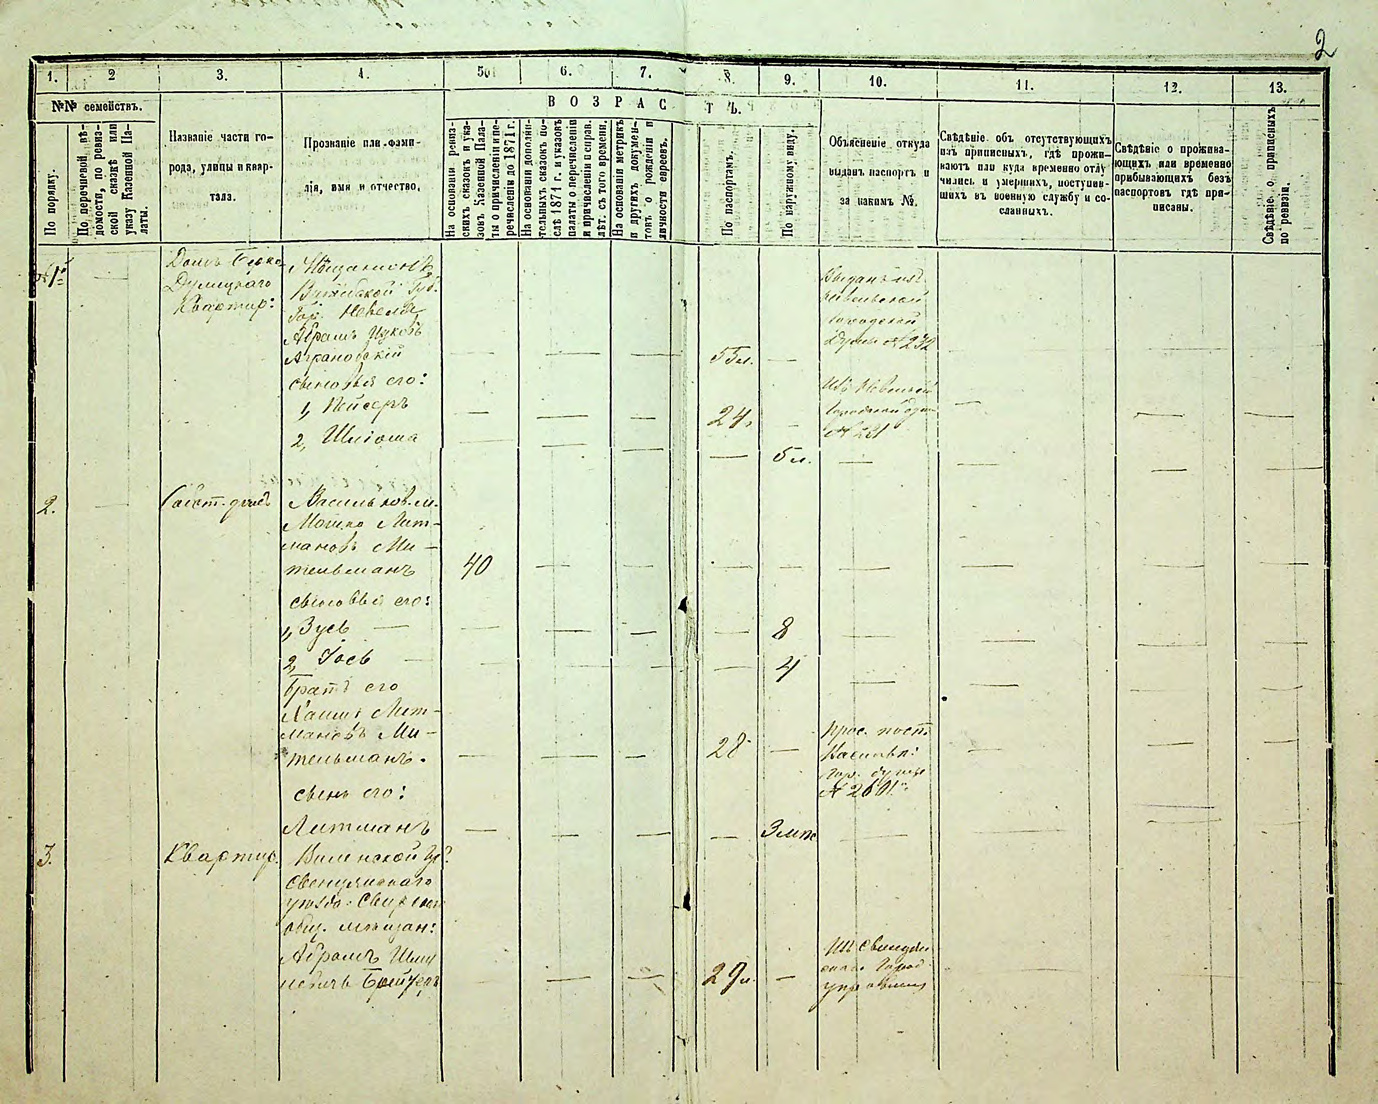 2
1.
2
3.
4.
5
6.
7.
8.
9.
10.
11.
12.
13.
№№ семействъ.
По порядку.
По перечневой вѣ-
домости, по ревиз-
ской сказкѣ или
указу Казенной Па-
латы.
Названіе части го-
рода, улицы и квар-
тала.
Прозваніе или фами-
лія, имя и отчество.
ВОЗРАСТЪ.
На основаніи ревиз-
скихъ сказокъ и ука-
зовъ Казенной Пала-
ты о причисленіи и пе-
речисленіи до 1871 г.
На основаніи дополни-
тельныхъ сказокъ по-
слѣ 1871 г. и указовъ
палаты о перечисленіи
и причисленіи и справ.
лѣт. съ того времени.
На основаніи метрикъ
и другихъ докумен-
товъ о рожденіи и
личности евреевъ.
По паспортамъ.
По наружному виду.
Объясненіе откуда
выданъ паспортъ и
за какимъ №.
Свѣдѣніе объ отсутствующихъ
изъ приписныхъ, гдѣ прожи-
ваютъ или куда временно отлу
чились и умершихъ, поступив-
шихъ въ военную службу и со-
сланныхъ.
Свѣдѣніе о прожива-
ющихъ или временно
прибывающихъ безъ
паспортовъ гдѣ при-
писаны.
Свѣдѣніе о приписныхъ
по ревизіи.
№1й
Домъ
Квартир:
Мѣщанинъ
Витебской Губ.
Гор. Невеля
Абрамъ Ицковъ
Аграновскій
55 л.
Выданъ изъ
Невельской
городской
Думы № 232
сыновья его:
1, Пейсеръ
24.
Изъ Невельской
№ 231
2, Шліома
5 л.
2.
Васильков. м.
Мошко Лит-
мановъ Ми-
тельманъ
40
сыновья его:
1, Зусь
8
2, Іось
4
Братъ его
Хаимъ Лит-
мановъ Ми-
тельманъ.
28
Васильк:
гор. думы
сынъ его:
Литманъ
3 мѣс
3.
Квартир.
Виленской Гу:
Свенцянскаго
уѣзда
общ. мѣщан:
Абрамъ
29 л.
Город
управленія